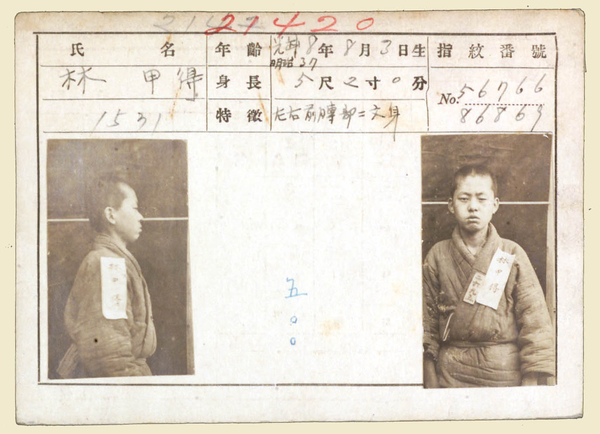 21420
氏名 年齡 光武8年8月3日生 指紋番號
明治37
林甲得 身長 5尺2寸0分 No. 56766
86869
1531 特徵 左右前膊部ニ文身
林甲得
林甲得
五〇〇